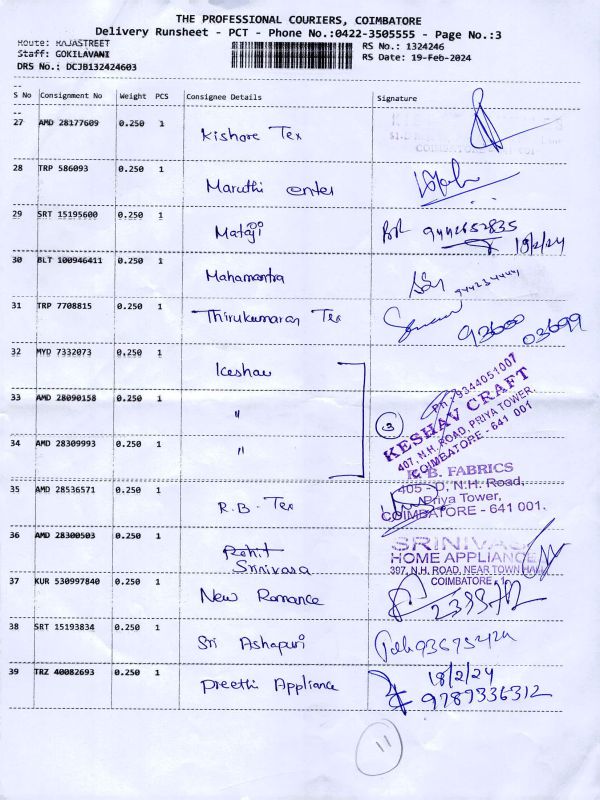 THE PROFESSIONAL COURIERS, COIMBATORE
Delivery Runsheet - PCT - Phone No.:0422-3505555 - Page No.:3
Route: RAJASTREET
RS No.: 1324246
Staff: GOKILAVANI
RS Date: 19-Feb-2024
DRS No.: DCJB132424603
--
S No Consignment No Weight PCS Consignee Details Signature
--
27 AMD 28177609 0.250 1 Kishore Tex
28 TRP 586093 0.250 1 Maruthi center
29 SRT 15195600 0.250 1 Mataji 9442652835
18/2/24
30 BLT 100946411 0.250 1 Mahamantra
31 TRP 7708815 0.250 1 Thirukumaran Tex 93600
03699
32 MYD 7332073 0.250 1 Keshav
33 AMD 28090158 0.250 1 "
34 AMD 28309993 0.250 1 "
3
Ph: 9344051007
KESHAV CRAFT
407, N.H. ROAD, PRIYA TOWER,
COIMBATORE - 641 001
35 AMD 28536571 0.250 1 R.B. Tex
R.B. FABRICS
405 - D, N.H. Road,
Priya Tower,
COIMBATORE - 641 001.
36 AMD 28300503 0.250 1 Rohit
Srinivasa
SRINIVAS
HOME APPLIANCE
397, N.H. ROAD, NEAR TOWN HALL
COIMBATORE - 1
37 KUR 530997840 0.250 1 New Romance
38 SRT 15193834 0.250 1 Sri Ashapuri
39 TRZ 40082693 0.250 1 Preethi Appliance 18/2/24
9789336312
11